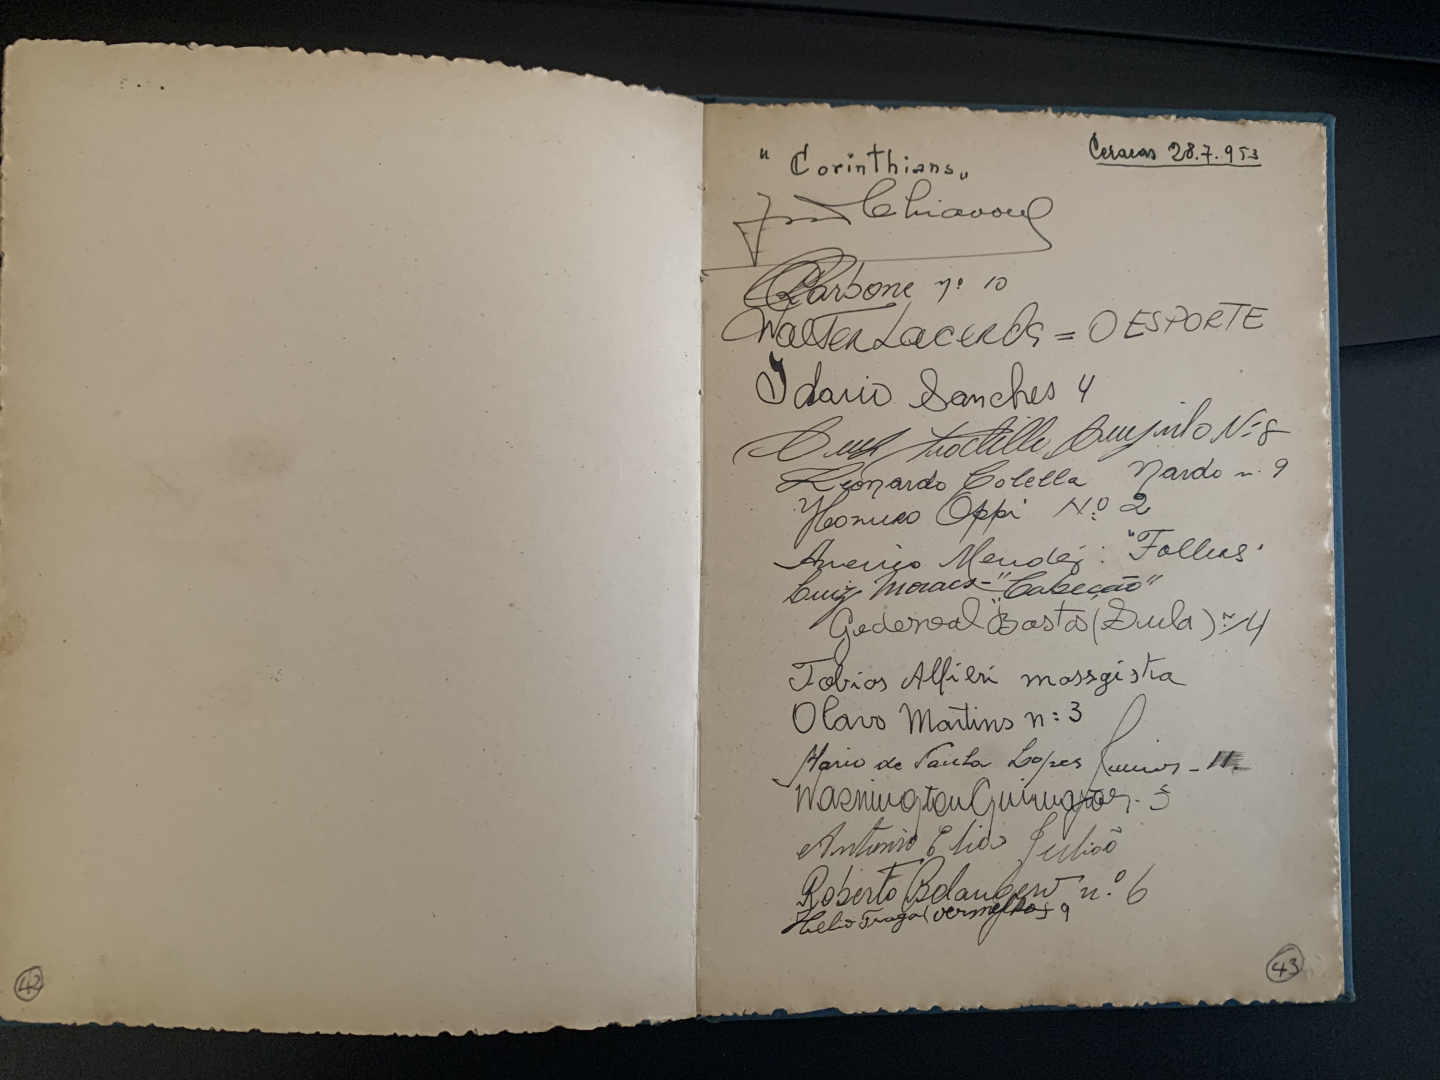 "Corinthians"
Caracas 28.7.953
Carbone nº 10
Walter Lacerda = O ESPORTE
Idario Sanches 4
Luiz Trochillo Luizinho Nº 8
Leonardo Colella Nardo n. 9
Homero Oppi Nº 2
Americo Mendez: "Folhas"
Luiz Moraes - "Cabeção"
Basto (Sula) nº 4
Tobias Alfieri massgista
Olavo Martins n: 3
Mario de Paula Lopes - 11
Washington - 5
Antonio Elias Julião
Roberto Belangero nº 6
Helio (vermelho) 9
42
43